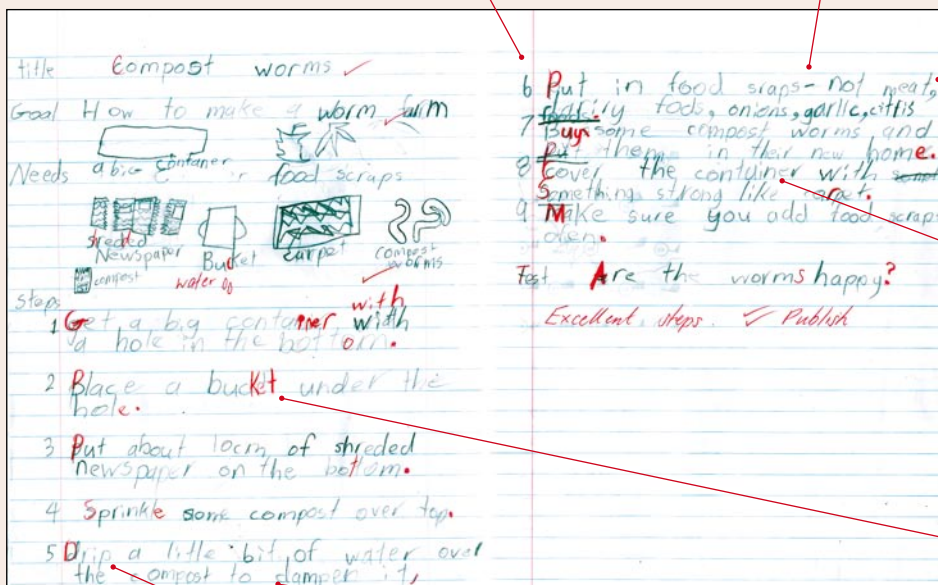 title Compost worms
Goal How to make a worm farm
a big container
Needs food scraps
shredded
Newspaper
Bucket
carpet
compost
worms
compost
water
Steps
with
1 Get a big container, width
a hole in the bottom.
2 Blace a bucket under the
hole.
3 Put about 10cm of shreded
newspaper on the bottom.
4 Sprinkle some compost over top.
5 Drip a little bit of water over
the compost to dampen it,
6 Put in food sraps - not meat,
dairiy fods, onions, garlic, citris
foods.
7 Buy some compost worms and
put them in their new home.
8 Cover the container with
Something strong like carpet.
9 Make sure you add food scraps
ofen.
Test Are the worms happy?
Excellent steps. Publish